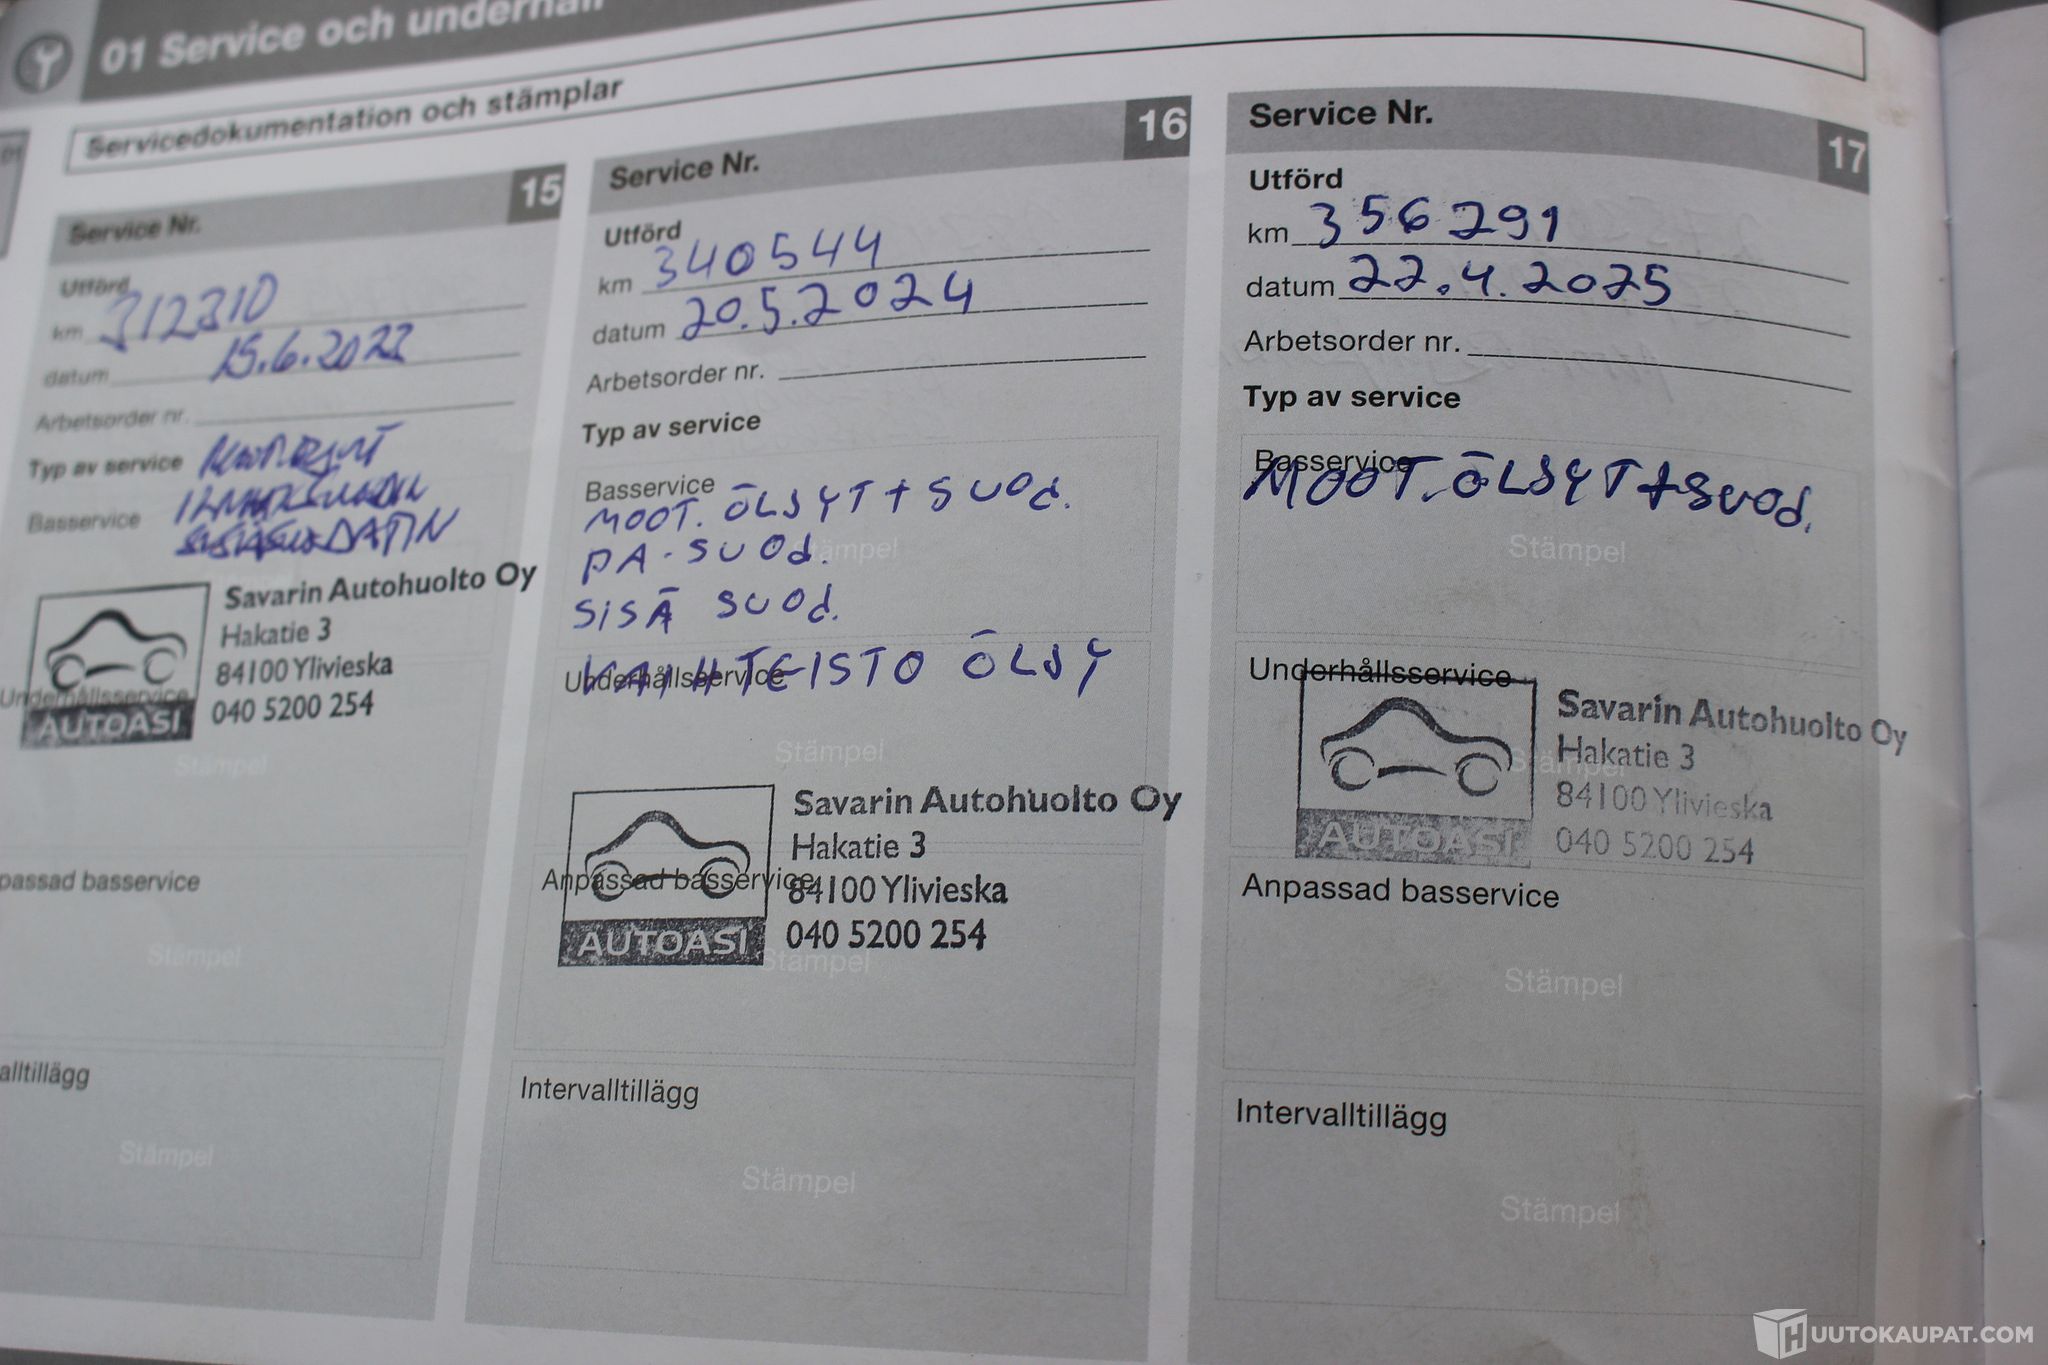 01 Service och underhåll
Servicedokumentation och stämplar
01
Service Nr. 15
Utförd
km 312310
datum 15.6.2022
Arbetsorder nr.
Typ av service
Basservice
Savarin Autohuolto Oy
Hakatie 3
84100 Ylivieska
040 5200 254
AUTOASI
Underhållsservice
Stämpel
passad basservice
Stämpel
alltillägg
Stämpel
Service Nr. 16
Utförd
km 340544
datum 20.5.2024
Arbetsorder nr.
Typ av service
Basservice
MOOT. ÖLJYT + SUOd.
Stämpel
PA-SUOd.
SISÄ SUOd.
Underhållsservice
VAIHTEISTO ÖLJY
Stämpel
Savarin Autohuolto Oy
Hakatie 3
Anpassad basservice
84100 Ylivieska
AUTOASI
040 5200 254
Stämpel
Intervalltillägg
Stämpel
Service Nr. 17
Utförd
km 356291
datum 22.4.2025
Arbetsorder nr.
Typ av service
Basservice
MOOT. ÖLJYT + SUOd.
Stämpel
Underhållsservice
Savarin Autohuolto Oy
Stämpel
Hakatie 3
84100 Ylivieska
040 5200 254
AUTOASI
Anpassad basservice
Stämpel
Intervalltillägg
Stämpel
HUUTOKAUPAT.COM